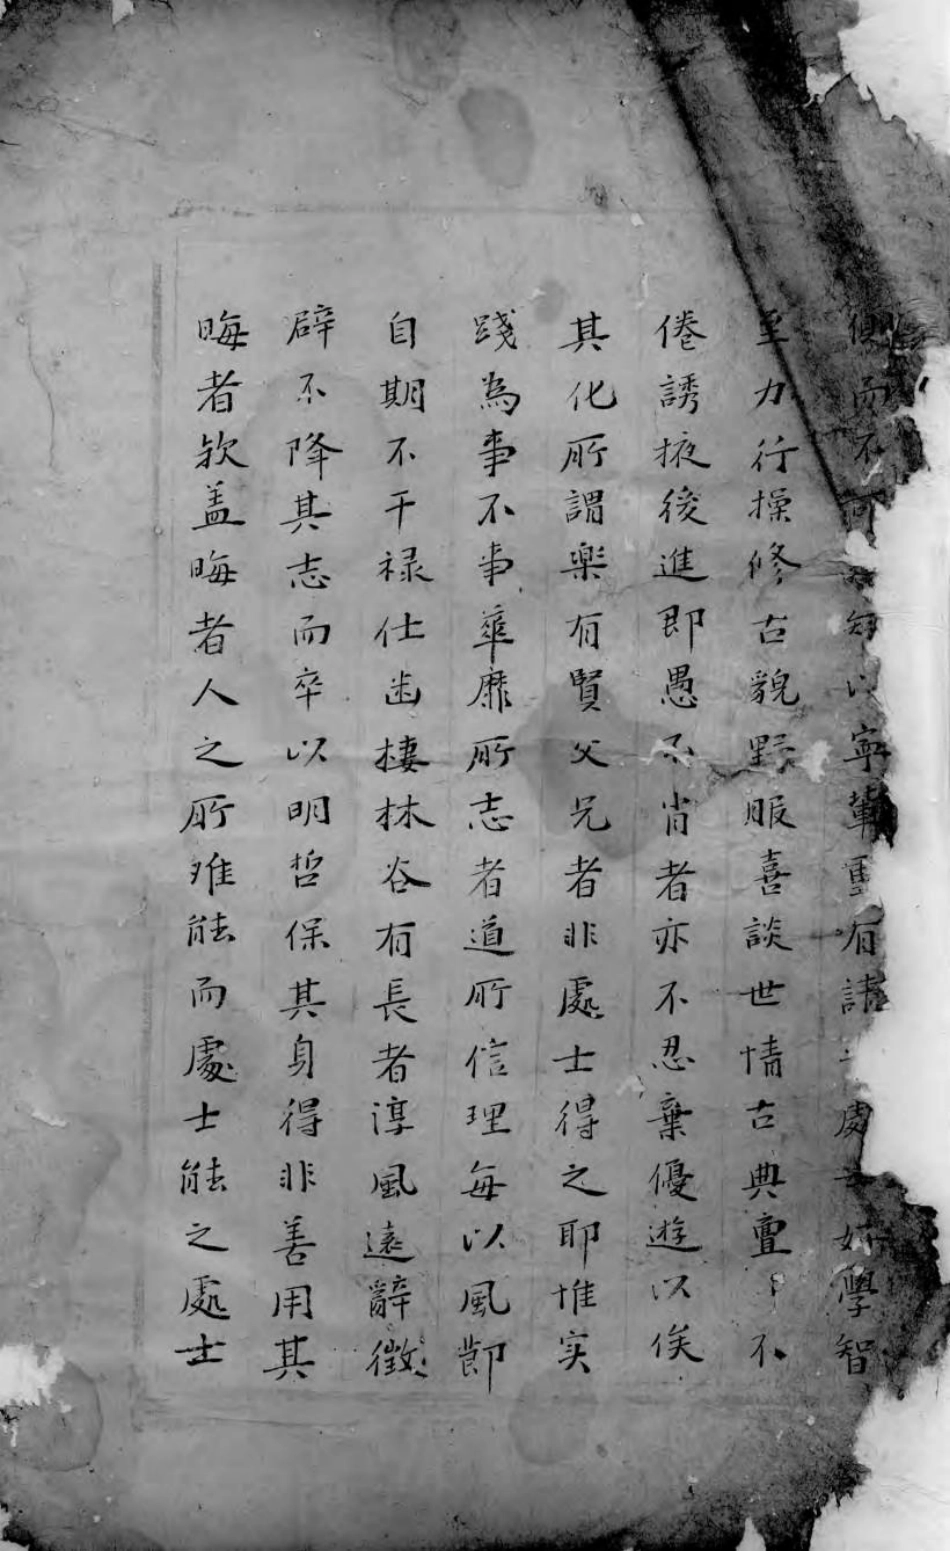 而不可以寧聾重有請處士好學智
至力行操修古貌野服喜談世情古典亹〻不
倦誘掖後進即愚不肖者亦不忍棄優遊以俟
其化所謂楽有賢父兄者非處士得之耶惟实
踐為事不事華靡所志者道所信理每以風節
自期不干禄仕幽棲林谷有長者淳風遠辭徵
辟不降其志而卒以明哲保其身得非善用其
晦者欤盖晦者人之所难能而處士能之處士